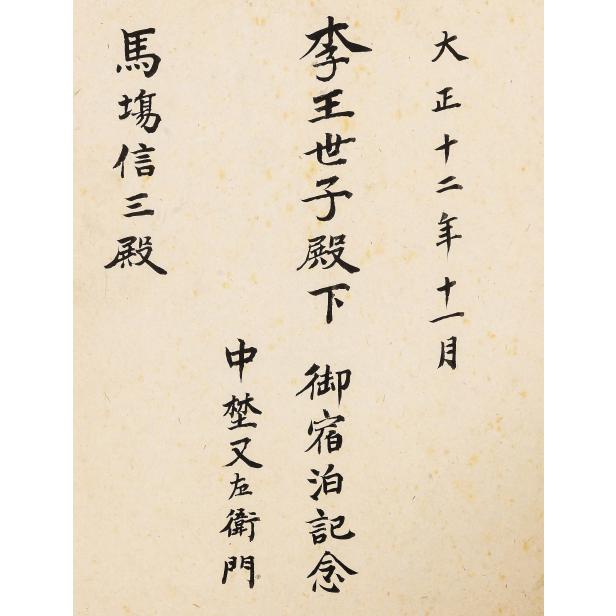 大正十二年十一月
李王世子殿下 御宿泊記念
中埜又左衛門
馬塲信三殿